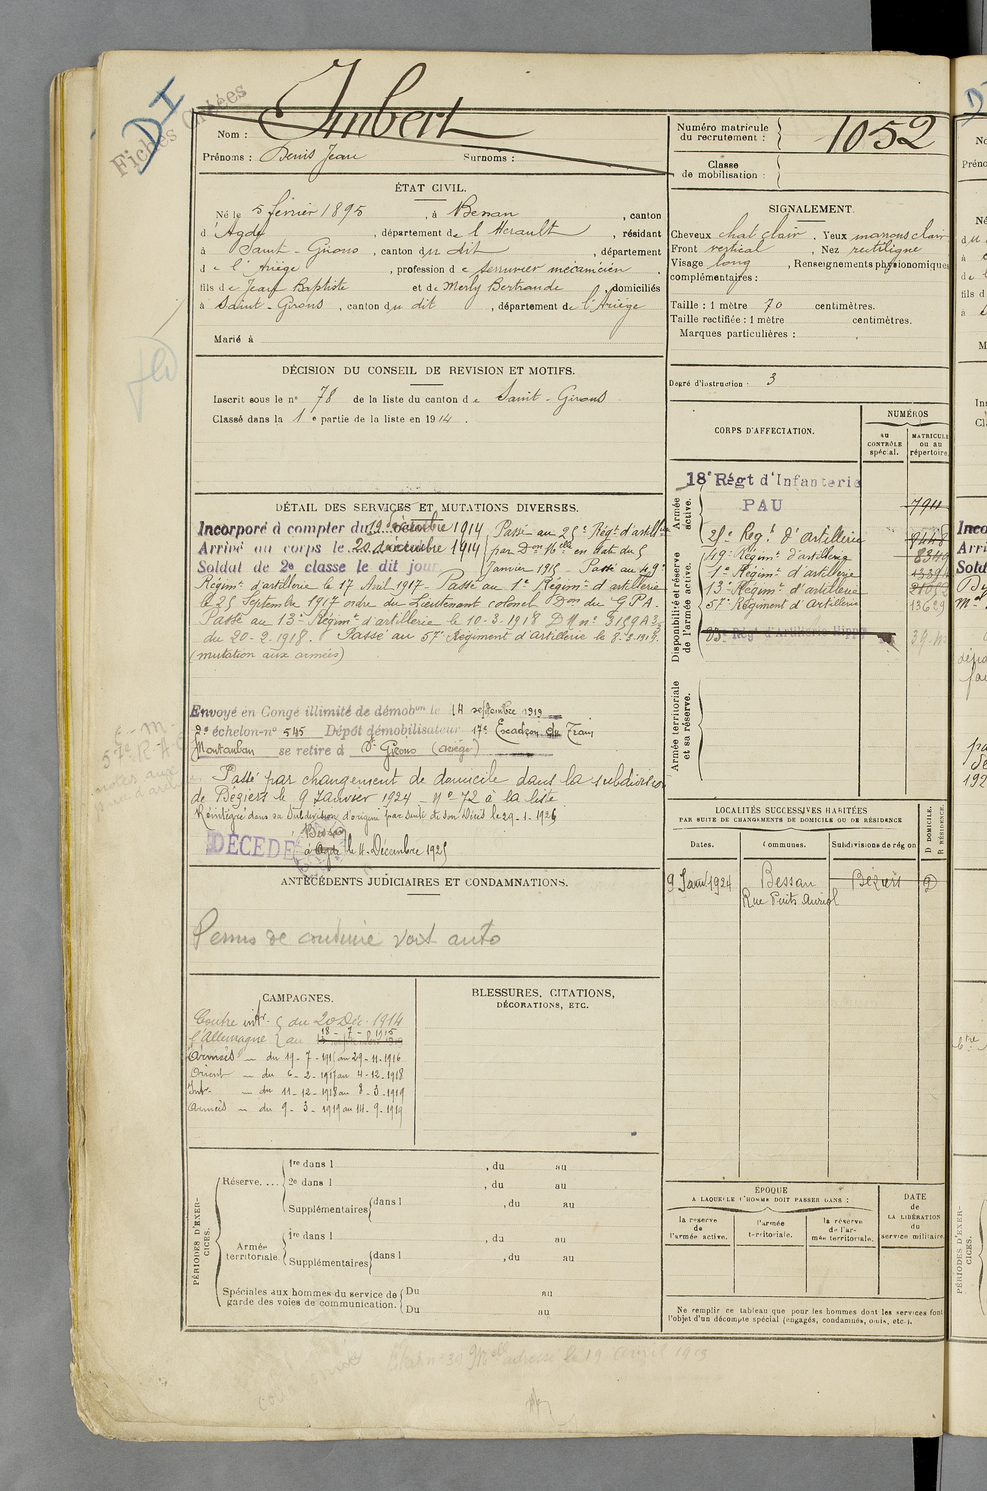 Fiches Créées
DI
Nom : Imbert
Prénoms : Denis Jean Surnoms :
Numéro matricule du recrutement : 1052
Classe de mobilisation :
ÉTAT CIVIL.
Né le 5 février 1895, à Bessan, canton
d'Agde, département de l'Hérault, résidant
à Saint-Girons, canton du dit, département
de l'Ariège, profession de serrurier mécanicien.
fils de Jean Baptiste et de Merly Bertrande, domiciliés
à Saint-Girons, canton du dit, département de l'Ariège
Marié à
SIGNALEMENT.
Cheveux chat clair, Yeux marrons clair
Front vertical, Nez rectiligne
Visage long, Renseignements physionomiques
complémentaires :
Taille : 1 mètre 70 centimètres.
Taille rectifiée : 1 mètre centimètres.
Marques particulières :
Degré d'instruction : 3
DÉCISION DU CONSEIL DE REVISION ET MOTIFS.
Inscrit sous le n° 78 de la liste du canton de Saint-Girons
Classé dans la 1e partie de la liste en 1914.
CORPS D'AFFECTATION.
NUMÉROS
au CONTRÔLE spécial.
MATRICULE ou au répertoire.
Armée active.
18e Régt d'Infanterie
PAU 7911
Disponibilité et réserve de l'armée active.
25e Régt d'artillerie
49e Régimt d'artillerie
1e Régimt d'artillerie
13e Régimt d'artillerie
57e Régiment d'Artillerie 13629
Régt d'Artillerie Hippo
Armée territoriale et sa réserve.
DÉTAIL DES SERVICES ET MUTATIONS DIVERSES.
Incorporé à compter du 19 décembre 1914 Passé au 25e Régt d'artillie
Arrivé au corps le 20 décembre 1914 par Don 16e en date du 5
Soldat de 2e classe le dit jour Janvier 1915 - Passé au 49e
Régimt d'artillerie le 17 Avril 1917 - Passé au 1e Régimt d'artillerie
le 25 Septembre 1917 ordre du Lieutenant colonel Don du G P A.
Passé au 13e Régimt d'artillerie le 10-3-1918 D M n° 3159 A 3
du 20-2-1918. Passé au 57e Régiment d'Artillerie le 8-3-1919.
(mutation aux armées)
Envoyé en Congé illimité de démobon le 14 septembre 1919
9e échelon n° 545 Dépôt démobilisateur 17e Escadron du Train
Montauban se retire à St Girons (Ariège)
Passé par changement de domicile dans la subdivision
de Béziers le 9 Janvier 1924 - N° 72 à la liste
Réintégré dans sa Subdivision d'origine par suite de son Décès le 29-1-1926
DÉCÉDÉ à Agde Bessan le 4 Décembre 1925
ANTÉCÉDENTS JUDICIAIRES ET CONDAMNATIONS.
Permis de conduire voit auto
LOCALITÉS SUCCESSIVES HABITÉES
PAR SUITE DE CHANGEMENTS DE DOMICILE OU DE RÉSIDENCE
Dates. Communes. Subdivisions de région D DOMICILE. R RÉSIDENCE.
9 Janv 1924 Bessan Béziers D
Rue Puits Auriol
CAMPAGNES.
Contre intr. du 20 Déc. 1914
l'Allemagne au 18-7-1915
Armées - du 19-7-1915 au 29-11-1916
Orient - du 6-2-1917 au 4-12-1918
Intr - du 11-12-1918 au 8-3-1919
Armées - du 9-3-1919 au 14-9-1919
BLESSURES, CITATIONS,
DÉCORATIONS, ETC.
PÉRIODES D'EXERCICES.
Réserve.... 1re dans l , du au
2e dans l , du au
Supplémentaires dans l , du au
Armée territoriale. 1re dans l , du au
Supplémentaires dans l , du au
Spéciales aux hommes du service de garde des voies de communication. Du au
Du au
ÉPOQUE
A LAQUELLE L'HOMME DOIT PASSER DANS :
la réserve de l'armée active.
l'armée territoriale.
la réserve de l'armée territoriale.
DATE de LA LIBÉRATION du service militaire.
Ne remplir ce tableau que pour les hommes dont les services font
l'objet d'un décompte spécial (engagés, condamnés, omis, etc.).